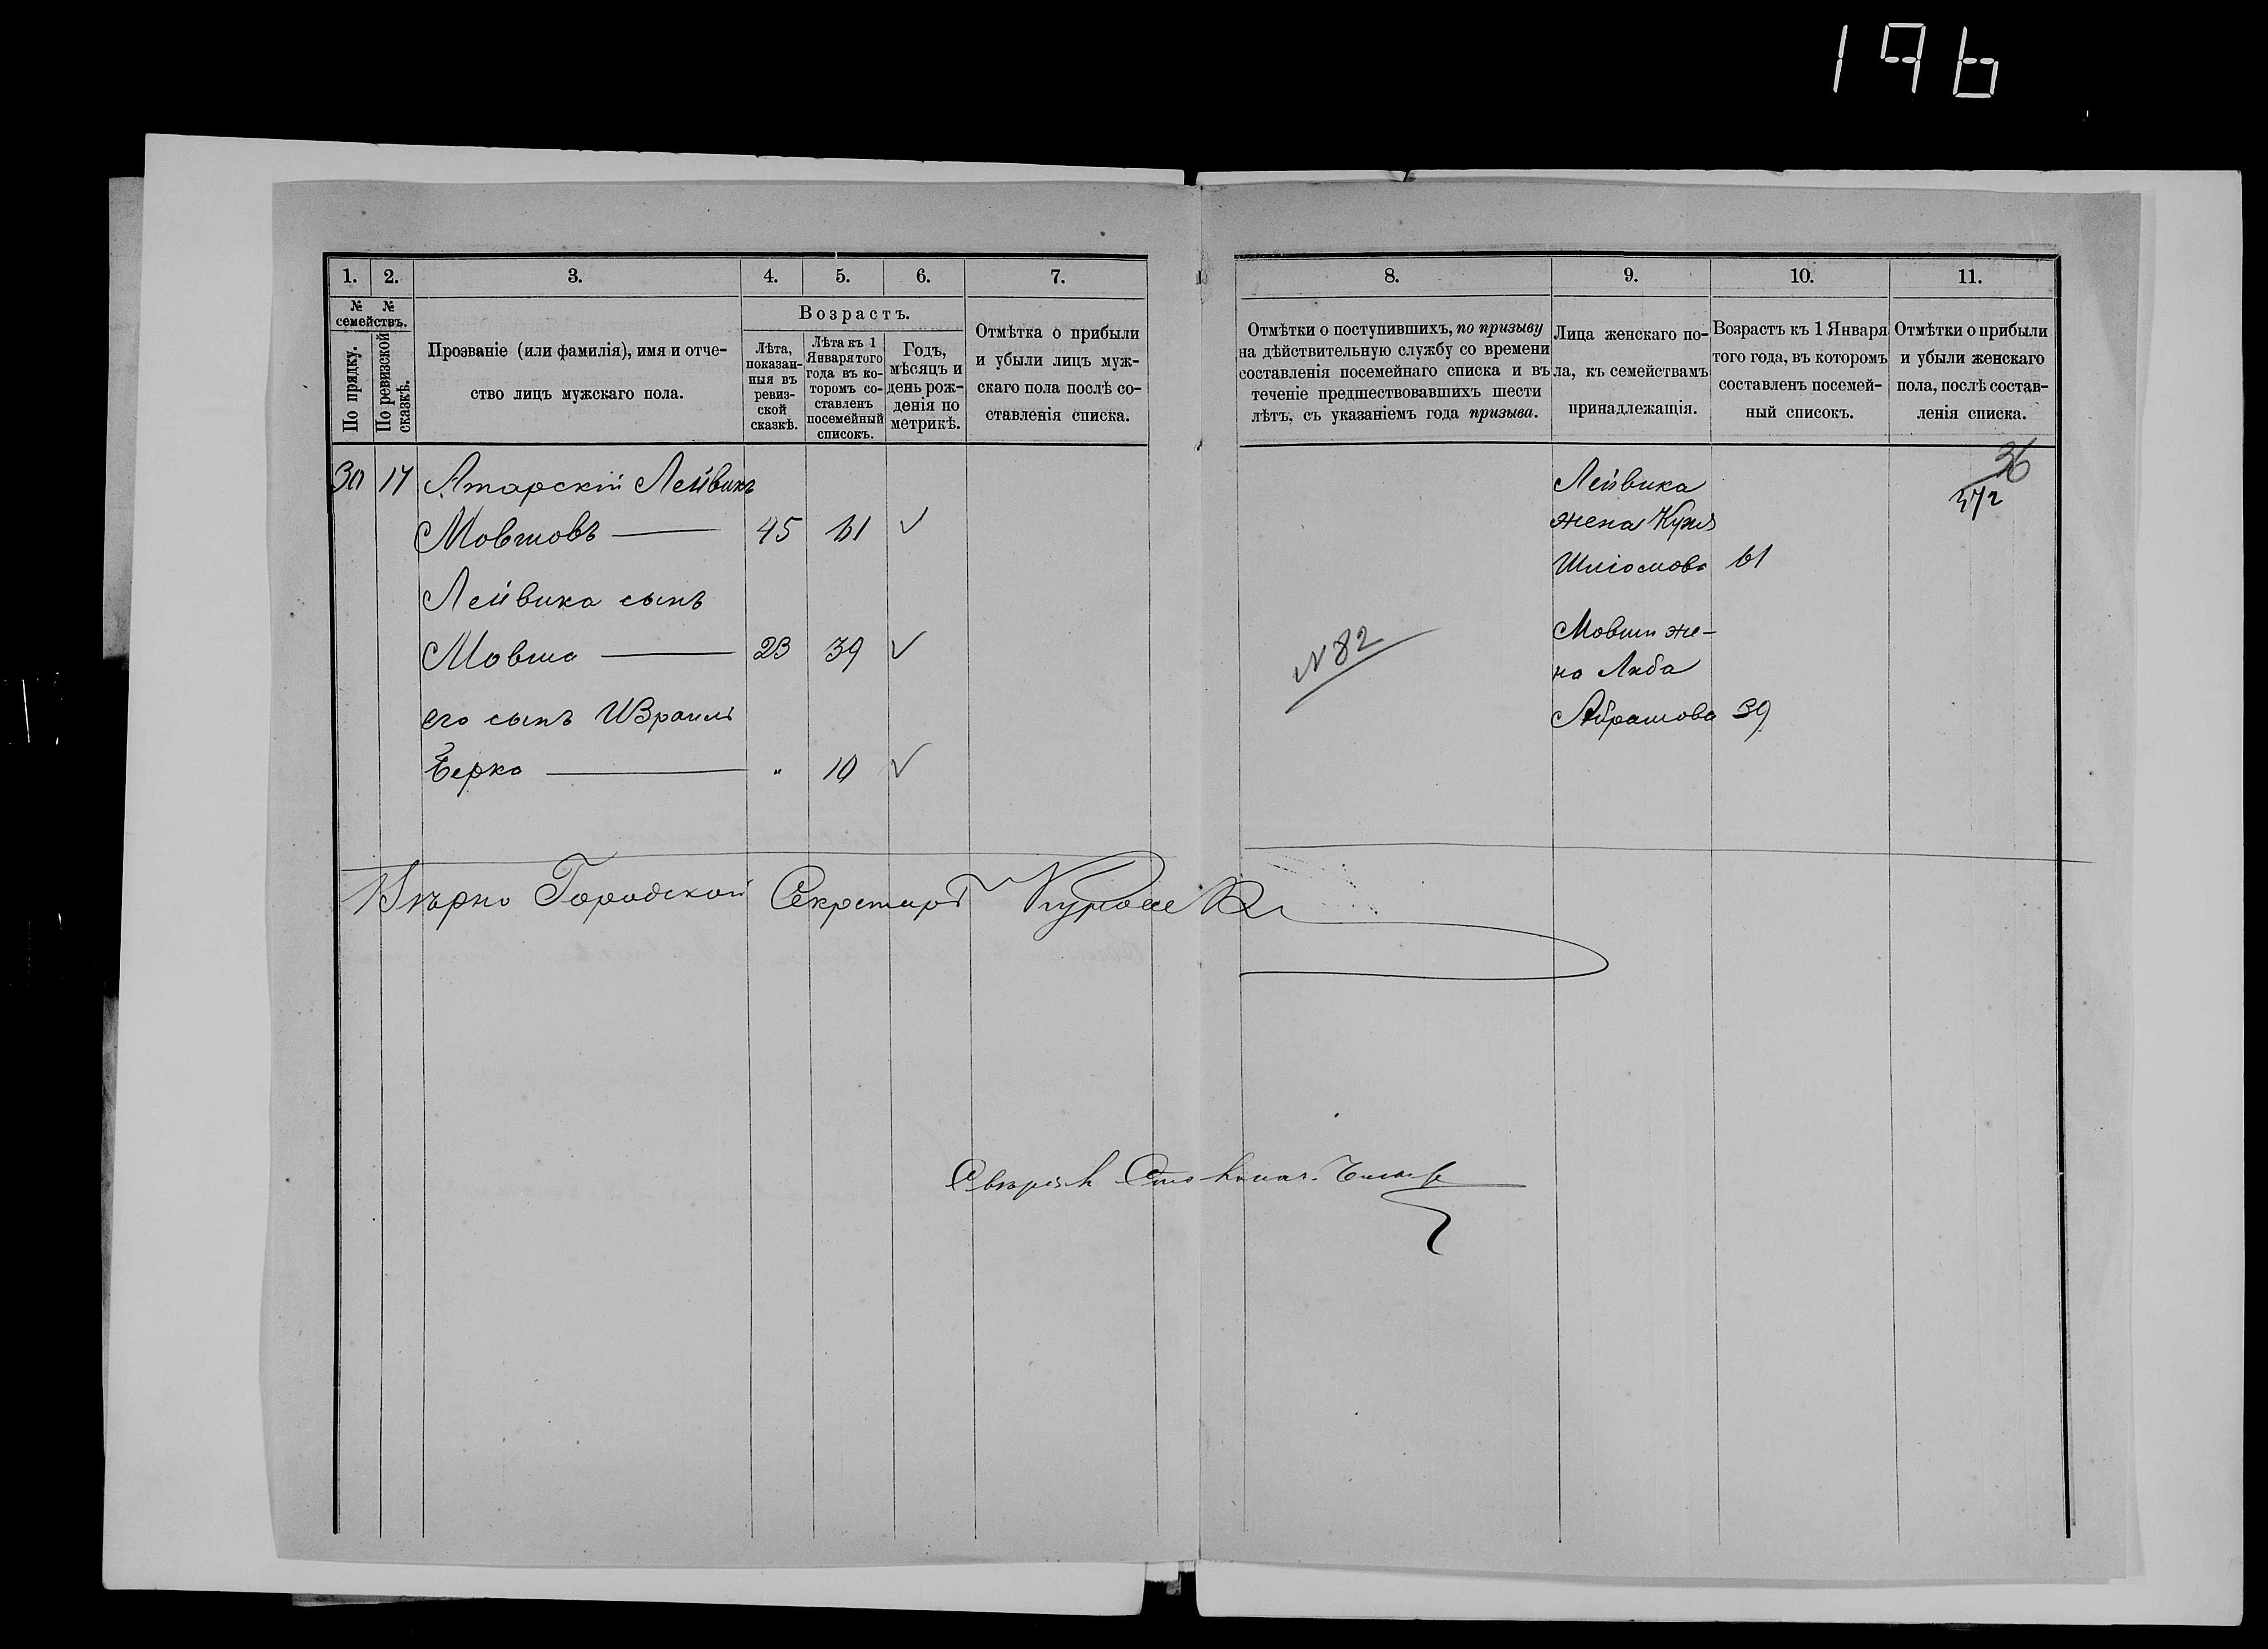 196
1. 2. 3. 4. 5. 6. 7.
№ № семействъ.
По прядку.
По ревизской сказкѣ.
Прозваніе (или фамилія), имя и отче-
ство лицъ мужскаго пола.
Возрастъ.
Лѣта,
показан-
ныя въ
ревиз-
ской
сказкѣ.
Лѣта къ 1
Января того
года въ ко-
торомъ со-
ставленъ
посемейный
списокъ.
Годъ,
мѣсяцъ и
день рож-
денія по
метрикѣ.
Отмѣтка о прибыли
и убыли лицъ муж-
скаго пола послѣ со-
ставленія списка.
30 17 Атарскій Лейвикъ
Мовшовъ — 45 61 ✓
Лейвика сынъ
Мовша — 23 39 ✓
его сынъ Израиль
Берко — " 10 ✓
Вѣрно Городской Секретарь
8. 9. 10. 11.
Отмѣтки о поступившихъ, по призыву
на дѣйствительную службу со времени
составленія посемейнаго списка и въ
теченіе предшествовавшихъ шести
лѣтъ, съ указаніемъ года призыва.
Лица женскаго по-
ла, къ семействамъ
принадлежащія.
Возрастъ къ 1 Января
того года, въ которомъ
составленъ посемей-
ный списокъ.
Отмѣтки о прибыли
и убыли женскаго
пола, послѣ состав-
ленія списка.
36
372
Лейвика
жена
61
Мовши же-
на
Абрамова 39
№ 82